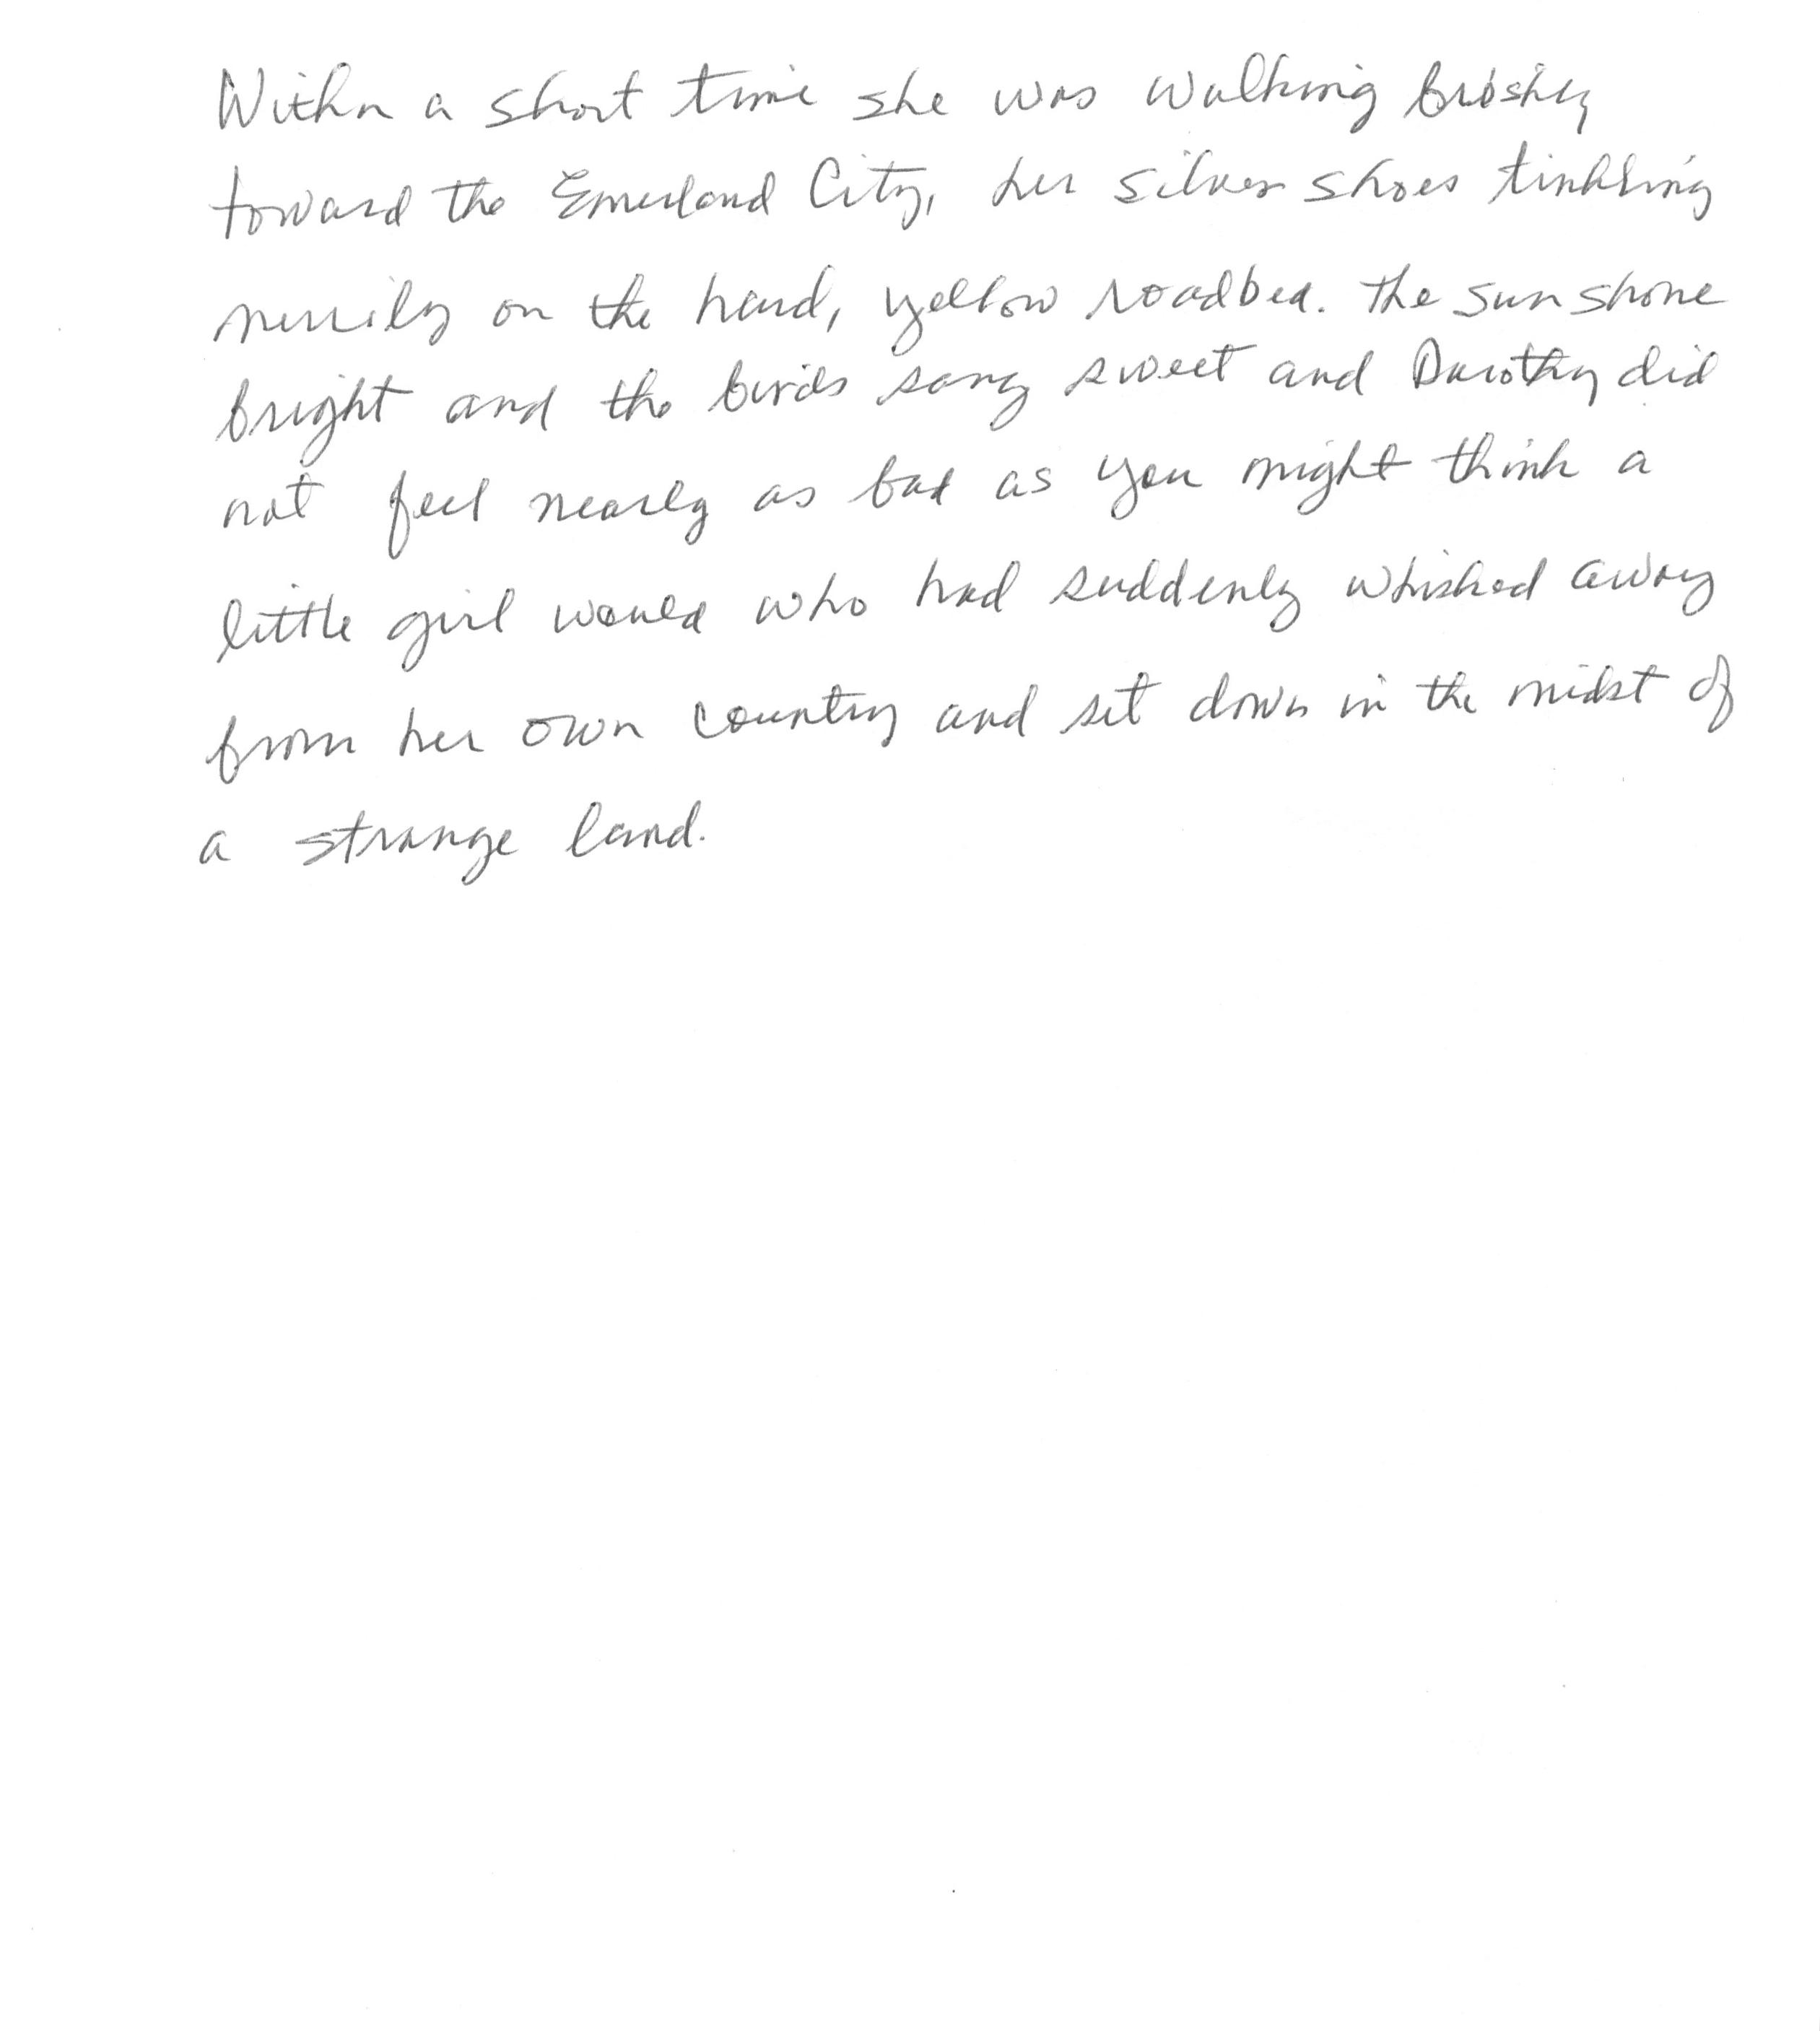 Withn a short time she was walking briskly
toward the Emerland City, her silver shoes tinkling
merrily on the hard, yellow roadbed. The sun shone
bright and the birds sang sweet and Dorothy did
not feel nearly as bad as you might think a
little girl would who had suddenly whisked away
from her own country and set down in the midst of
a strange land.